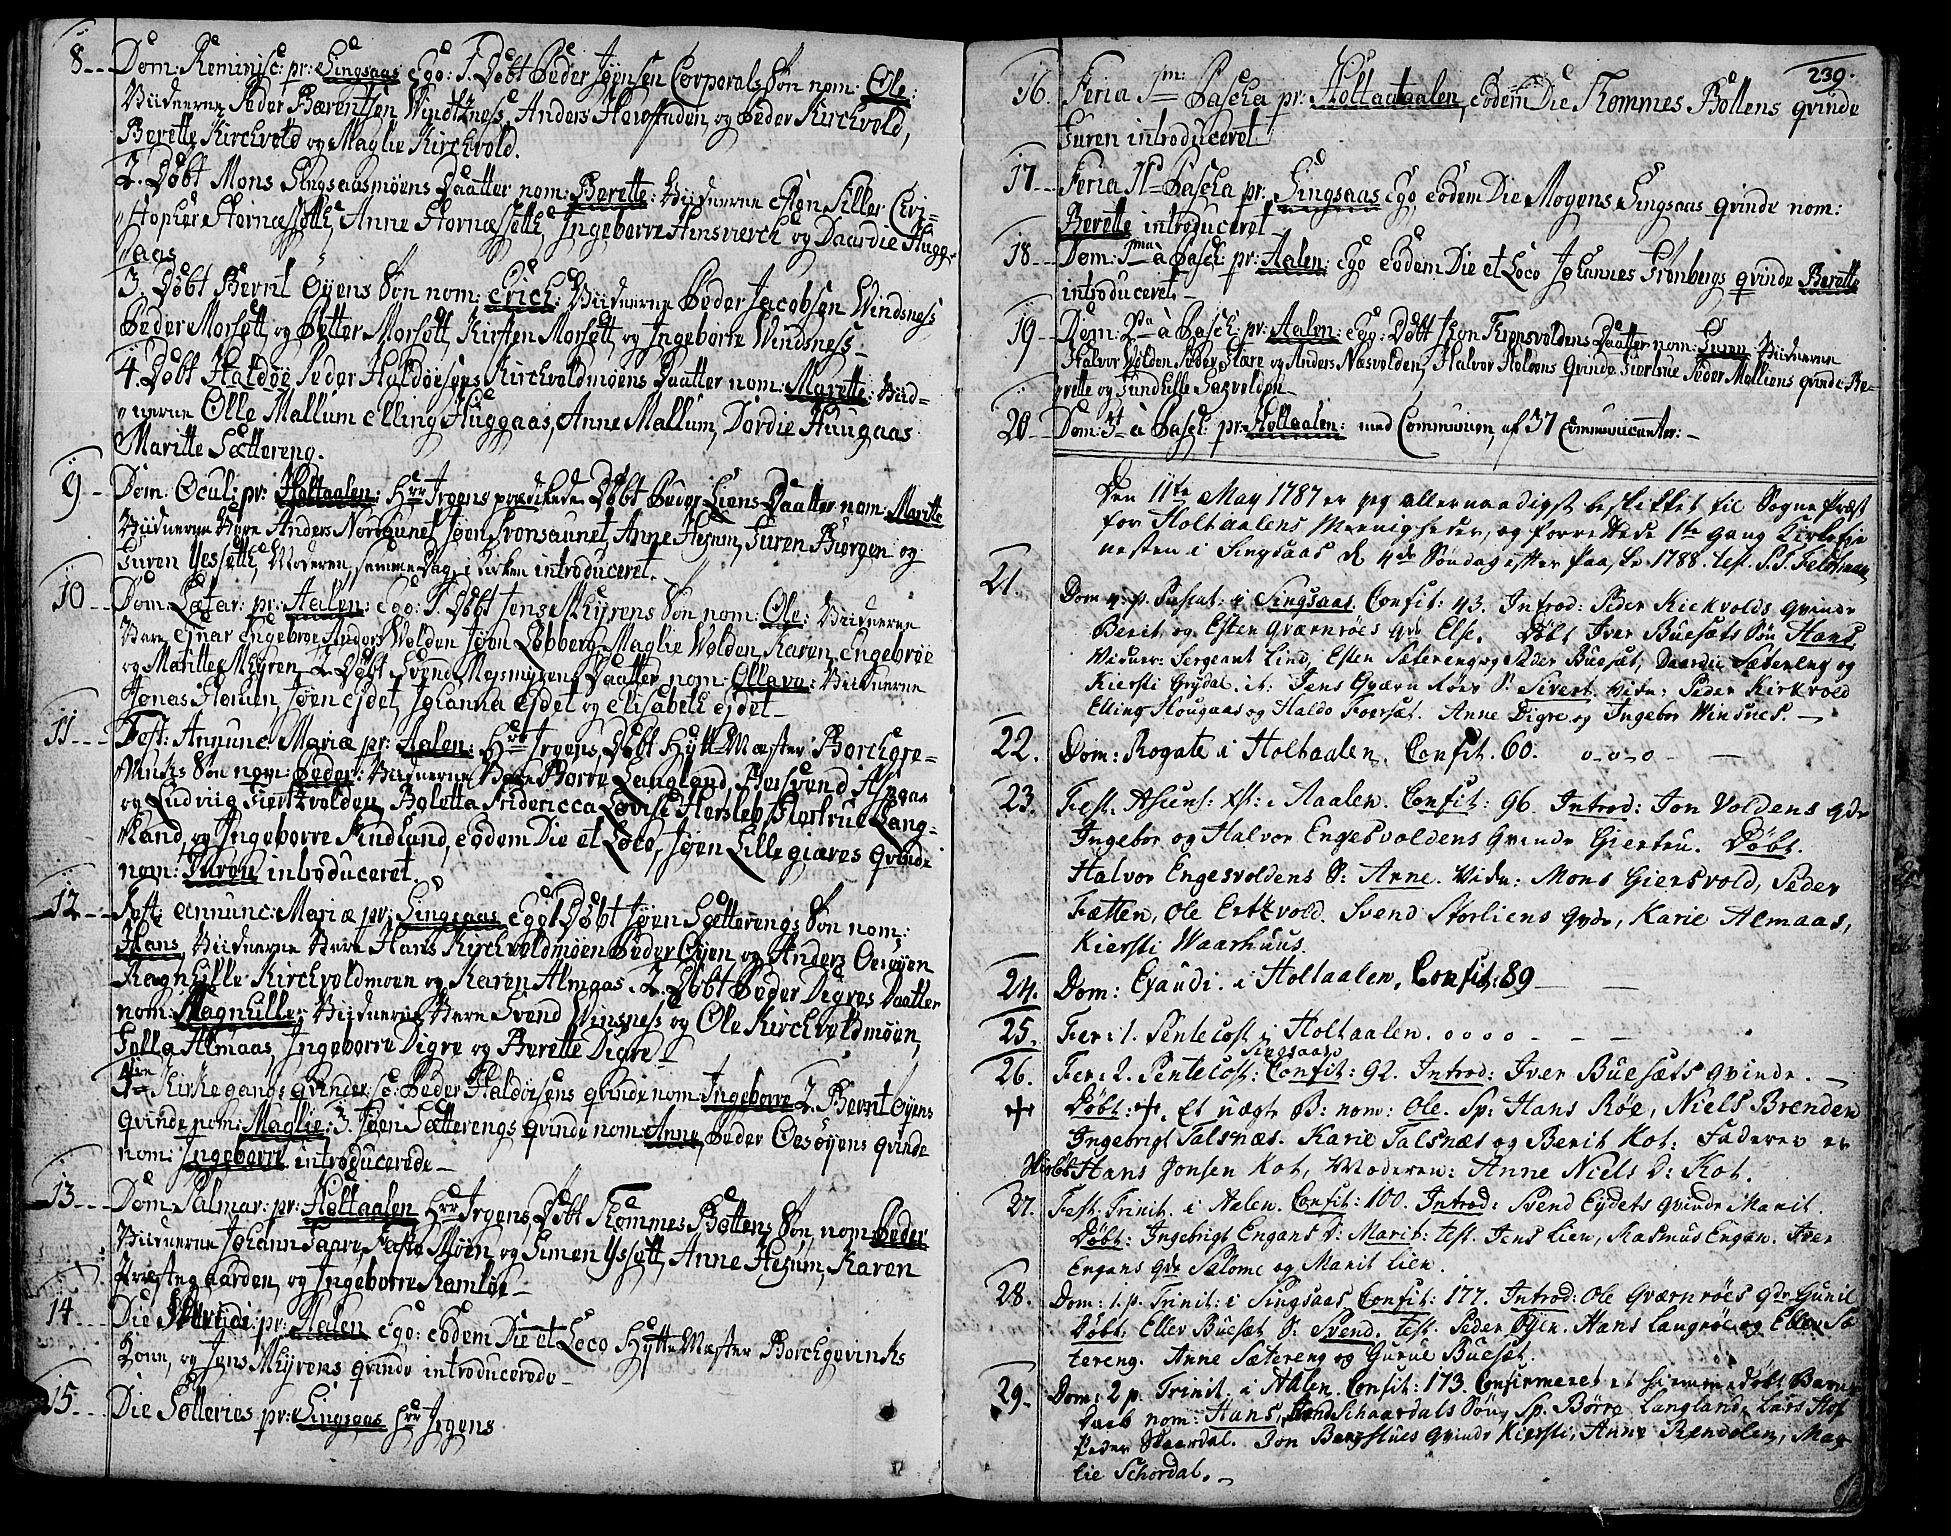 8 Dom: Reminisc: pr: Singsaas Ego: 1. Døbt Peder Jønsen Corporals Søn nom: Ole:
Viidnerne Peder Bærentsen Windtzness, Anders Hovstaden, og Peder Kirchvold,
Berette Kirchvold og Maglie Kirchvold.
2. Døbt Mons Singsaasmöens Daatter nom: Berette: Viidnerne Esten Siller Chri-
stopher Stornæssett, Anne Stornæssett, Ingeborre Hinsværck og Daardie Hugg-
aas
3. Døbt Bernt Øyens Søn nom: Erich: Viidnerne Peder Jacobsen Windsness
Peder Morsett, og Petter Morsett, Kirsten Morsett og Ingeborre Windsness
4. Døbt Haldøe Peder Haldøesens Kirchvoldmöens Daatter nom: Marette: Viid-
nerne Olle Mallum Elling Huggaas, Anne Mallum, Dordie Huugaas
Maritte Sættereng.
9 Dom: Ocul: pr: Holtaalen: Hrr Irgens prædikede Døbt Peder Liens Daatter nom: Maritte
Viidnerne Vare Anders Nordaunet Jøen Aronsaunet, Anne Hesum, Guren Biørgen og
Guren Ysset, Moderen samme Dag i Kirken introduceret.
10 Dom: Lætar: pr: Aalen: Ego: 1. Døbt Jens Myrens Søn nom: Ole: Viidnerne
Vare Ejnar Engebroe Anders Wolden Jøen Løbberg, Maglie Wolden, Karen Engebrøe
og Maritte Myren, 2. Døbt Svend Mosmyrens Daatter nom: Ollava: Viidnerne
Jonas Floeien, Jøen Ejdet, Johanna Ejdet og Elisabeth Ejdet
11 Fest: Annunc: Mariæ pr: Aalen: Hrr Irgens, Døbt Hytt Mæster Borchgre-
vincks Søn nom: Peder: Viidnerne Vare Borre Langland, Bersvend Aspaas
og Ludvig Hiertzvolden, Boletta Fridericca Lovise Herslep Hiertrue Lang-
land, og Ingeborre Findland, eodem Die et Loco, Jøen Lillegiæres Qvinde
nom: Guren introduceret.
12 Fest: Annunc: Mariæ pr: Singsaas Ego 1. Døbt Jøen Sætterengs Søn nom:
Hans, Viidnerne Vare Hans Kirchvoldmöen Peder Øyen og Anders Oesøyen
Ragnhille Kirchvoldmoen og Karen Almaas. 2. Døbt Peder Digres Daatter
nom: Magnhille: Viidnerne Vare Svend Winsness og Ole Kirchvoldmöen,
Sølla Almaas, Ingeborre Digre og Berette Digre
Kirkegangs Qvinder: Peder Haldøesens Qvinde nom: Ingeborre 2. Bernt Øyens
Qvinde nom: Maglie: 3. Jøen Sætterengs Qvinde nom: Anne, Peder Oesøyens Qvinde
nom: Ingeborre introducerede
13 Dom: Palmar: pr: Holtaalen Hrr Irgens, Døbt Thommes Bottens Søn, nom: Peder
Viidnerne Johann Gaare, Moen og Simen Yssett, Anne Hesum, Karen
Præstegaarden, og Ingeborre Ramløe
14 Die pr: Aalen Ego: eodem Die et Loco Hytte Mæster Borchgevincks
Kone, og Jens Myrens Qvinde introducerede
15 Die pr: Singsaas Hrr Irgens
239.
16. Feria 1ma Pascha pr: Holtaalen, eodem Die Thommes Bottens Qvinde
Guren introduceret
17 Feria 2da Pascha pr: Singsaas Ego eodem Die Mogens Singsaas Qvinde nom:
Berette introduceret
18 Dom: 1ma à Pasch: pr: Aalen: Ego eodem Die et Loco Johannes Grønbergs Qvinde Berette
introduceret
19 Dom: 2da à Pasch: pr: Aalen: Ego: Døbt Jøen Finnsvoldens Daatter nom: Guren Viidnerne
Halvor Volden, Peder Hare og Anders Næsvolden, Halvor Moloens Qvinde Giertrue Peder Molliens Qvinde Be-
rette og Gundhille
20 Dom: 3ti à Pasch: pr: Holtaalen: med Communion af 37 Communicanter:
Den 11te May 1787 er jeg allernaadigst beskikket til Sogne Præst
for Holtaalens Meenigheder, og forrettede 1ste gang Kirketje
nesten i Singsaas d 4de Søndag efter Paaske 1788. test. Feldtmann
21. Dom: 4. p. Paschat: i Singsaas. Confit: 43. Introd: Peder Kirkvolds Qvinde
Berit og Esten Qværnröes Qde Else. Døbt Iver Buesæts Sön Hans
Vidner: Sergeant Lind, Esten Sætereng og Peder Buesæt, Daardie Sætereng og
Kiersti Grydal. it: Jens Qværn Röes S: Sivert Vidn: Peder Kirkvold
Elling Hougaas og Haldo Forset. Anne Digre og Ingebor Winsnes.
22. Dom: Rogate i Holtaalen. Confit. 60.
23. Fest. Ascens: Xst: i Aalen. Confit: 96. Introd: Jon Voldens Qde
Ingebor og Halvor Engesvoldens Qvinde Giertru. Døbt.
Halvor Engesvoldens D: Anne. Vidn: Mons Giersvold, Peder
Fætten, Ole Ertzvold. Svend Storliens Qvde, Karie Almaas,
Kiersti Waarhuus.
24. Dom: Exaudi. i Holtaalen, Confit: 89
25. Fer: 1. Pentecost i Holtaalen.
26. Fer: 2. Pentecost: Singsaas Confit: 92. Introd: Iver Buesæts Qvinde.
Døbt: Et uægte B: nom: Ole. Sp: Hans Röe, Niels Brenden
Ingebrigt Talsnæs. Karie Talsnæs og Berit Kot: Faderen er
Hans Jonsen Kot, Moderen: Anne Niels D: Kot.
27. Fest: Trinit. i Aalen. Confit: 100. Introd: Svend Eydets Qvinde Marit.
Døbt: Ingebrigt Engans D: Marit: test. Jens Lien, Rasmus Engan. Iver
Engans Qde Salome og Marit Lien.
28. Dom: 1. p. Trinit: i Singsaas Confit: 177. Introd: Ole Qværnröes Qde Gunil
Døbt: Eller Buesæt S: Svend. test. Peder Öyen. Hans Langröe og Ellen Sæ
tereng. Anne Sætereng og Gurue Buesæt.
29. Dom: 2 p. Trinit. i Aalen. Confit: 173. Confirmeret et hiemme Døbt Barns
Daab nom: Hans, Schaardals Sön, Sp. Börre Langland, Lars Hof
Peder Skaardal. Jon Bergstues Qvinde Kiersti, Anne Rendolen, Mag
lie Schordal.